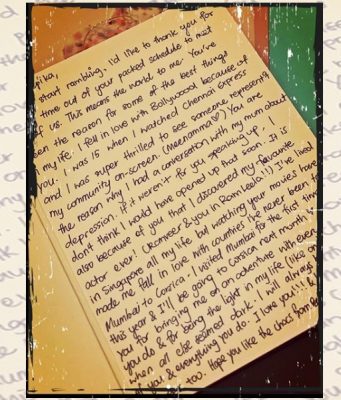 pika,
start rambling. I'd like to thank you for
time out of your packed schedule to meet
of us. This means the world to me. You've
een the reason for some of the best things
my life. I fell in love with Bollywood because of
you. I was 15 when I watched Chennai Express
and I was super thrilled to see someone represent
my community on-screen. (Meenamma♡) You are
the reason why I had a conversation with my mum about
depression. If it weren't for you speaking up, I
don't think I would have opened up that soon. It is
also because of you that I discovered my favourite
actor ever. (Ranveer & you in Ramleela!!) I've lived
in Singapore all my life but watching your movies have
made me fall in love with countries I've never been to.
Mumbai to Corsica. I visited Mumbai for the first time
this year & I'll be going to Corsica next month.
you for bringing me on an adventure with every
you do & for being the light in my life (like
when all else seemed dark. I will always
of you & everything you do. I love you!!!
too. Hope you like the chocs from